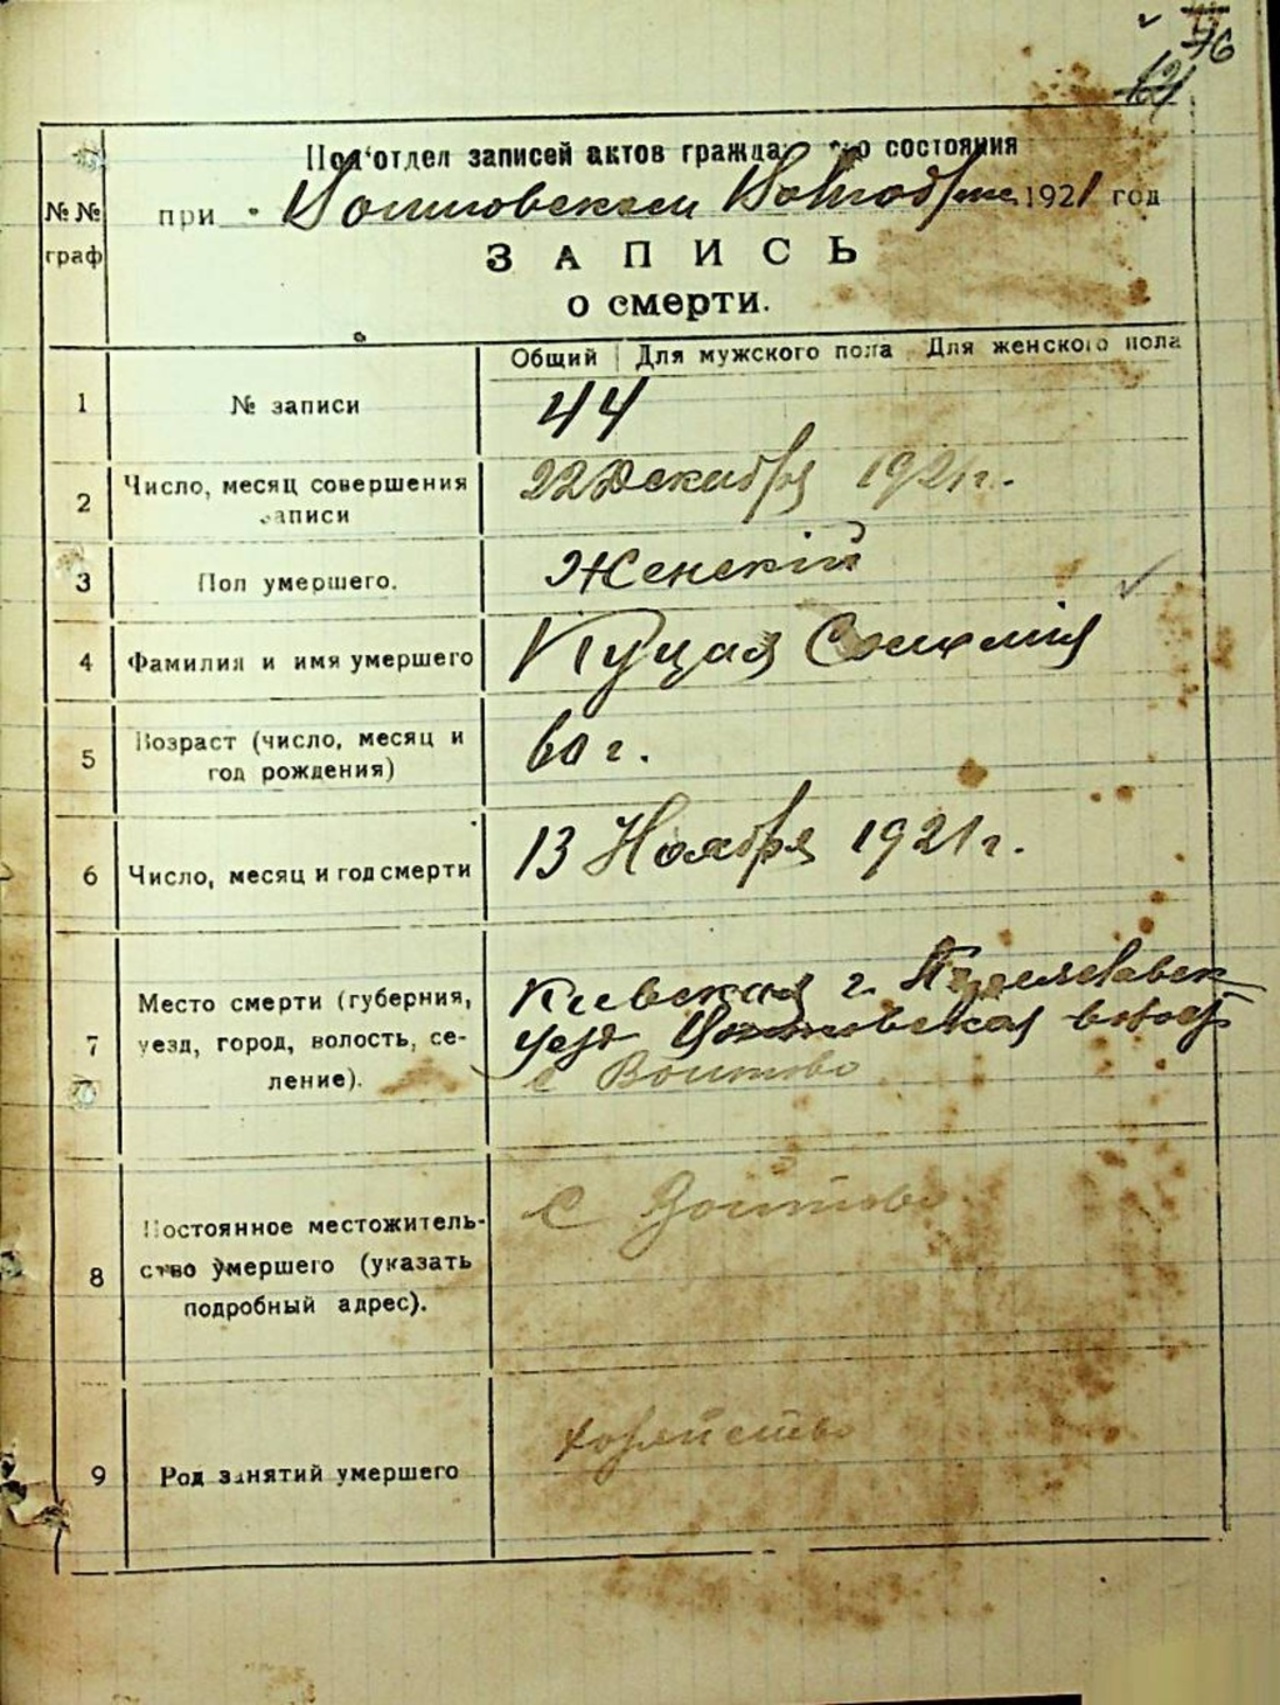 76
Под'отдел записей актов гражда о состояния
при Воитовском 1921 год
№№ граф
ЗАПИСЬ
о смерти.
Общий Для мужского пола Для женского пола
1 № записи 44
2 Число, месяц совершения записи 22 Декабря 1921 г.
3 Пол умершего. Женскій
4 Фамилия и имя умершего Куцая
5 Возраст (число, месяц и год рождения) 60 г.
6 Число, месяц и год смерти 13 Ноября 1921 г.
7 Место смерти (губерния, уезд, город, волость, се-
ление). Киевская г.
уезд Воитовская
с Воитово
8 Постоянное местожитель-
ство умершего (указать
подробный адрес). С Воитово
9 Род занятий умершего хозяйство